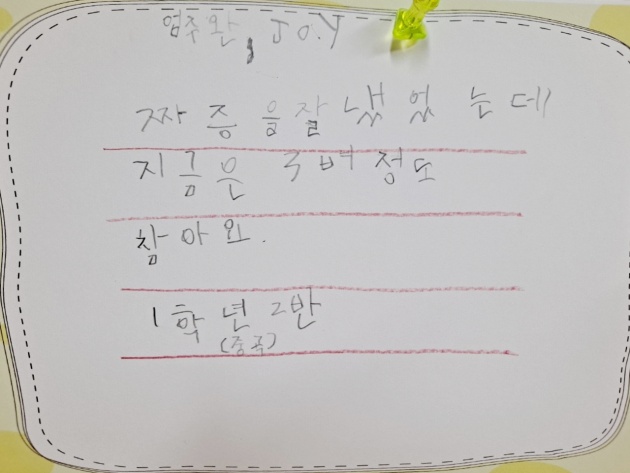 엄주완, Joy
짜증을잘 냈었는데
지금은 3버정도
참아요.
1학년2반
(중국)